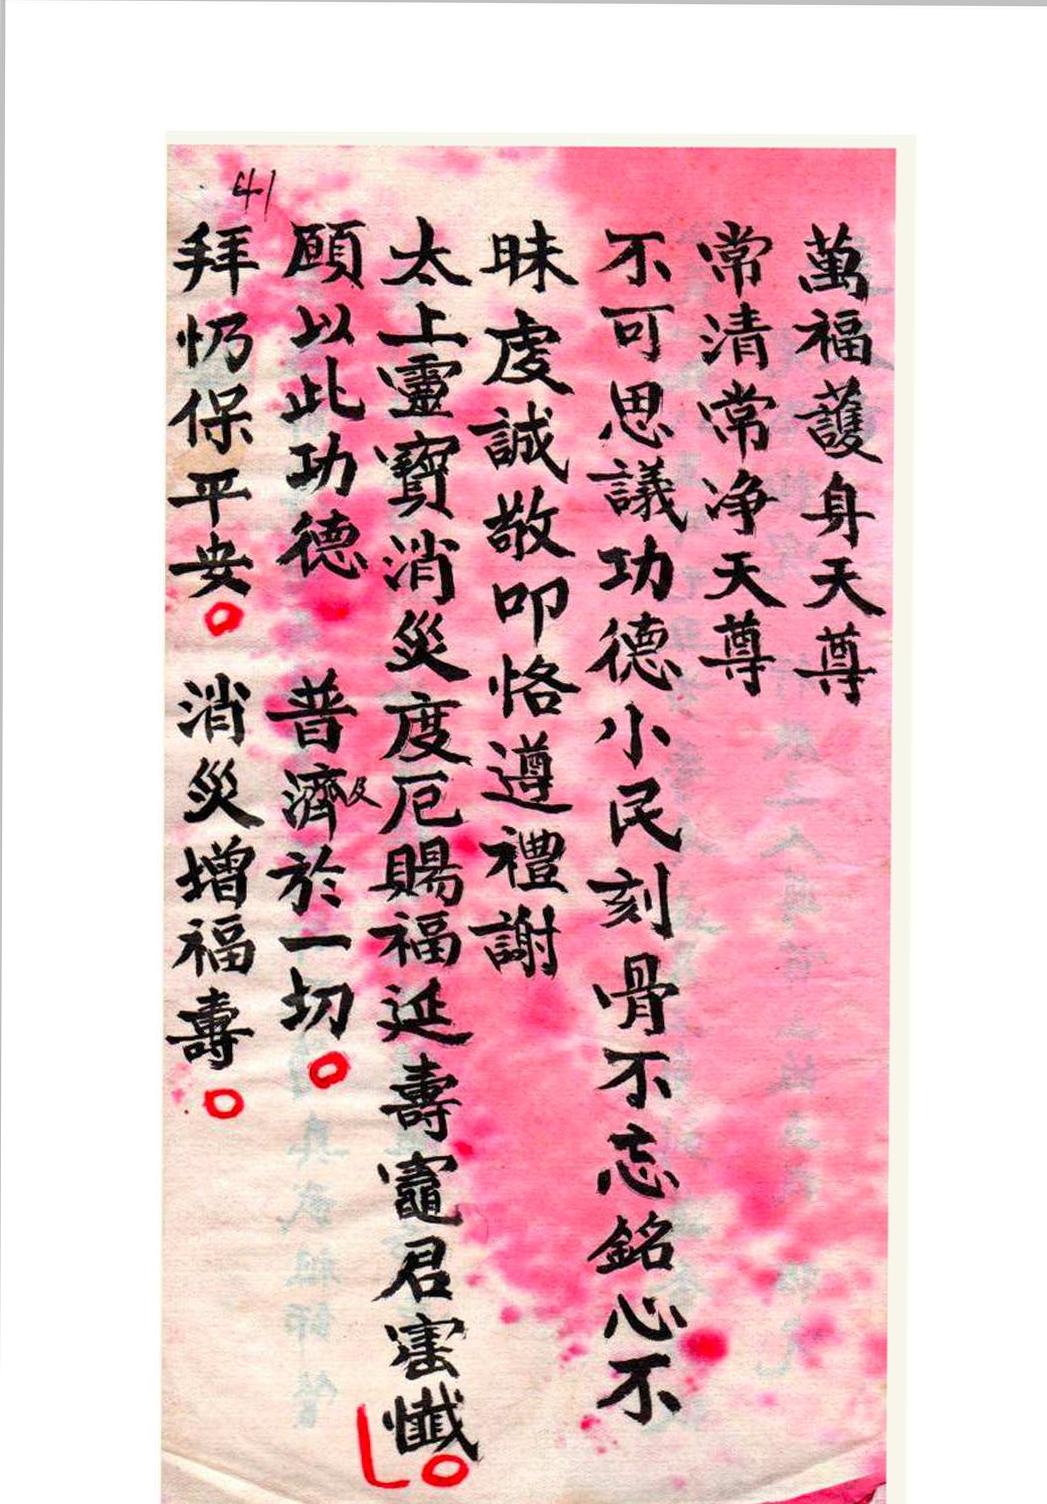 萬福護身天尊
常清常净天尊
不可思議功德小民刻骨不忘銘心不
昧虔誠敬叩恪遵禮謝
太上靈寶消災度厄賜福延壽竈君宝懺
願以此功德 普濟及於一切
拜 保平安 消災增福壽
41